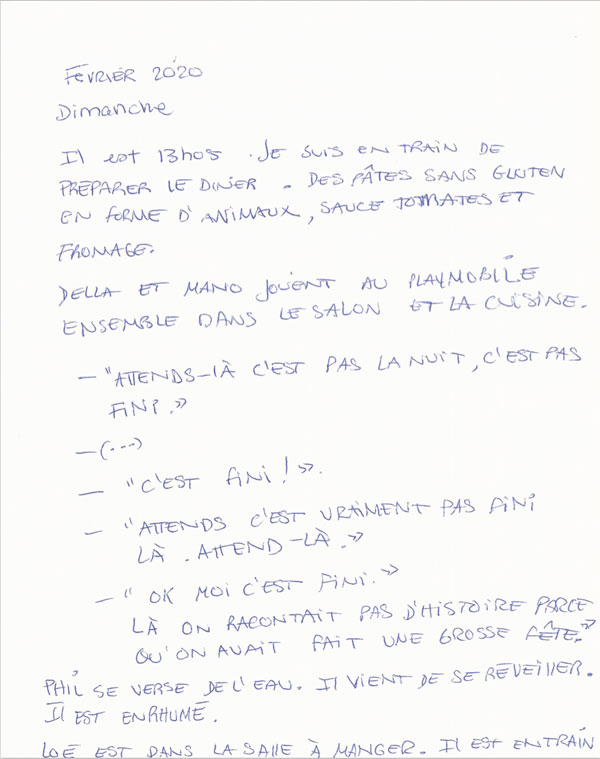 FÉVRIER 2020
Dimanche
Il est 13h05. JE SUIS EN TRAIN DE
PRÉPARER LE DINER. DES PÂTES SANS GLUTEN
EN FORME D'ANIMAUX, SAUCE TOMATES ET
FROMAGE.
DELLA ET MANO JOUENT AU PLAYMOBILE
ENSEMBLE DANS LE SALON ET LA CUISINE.
— "ATTENDS-LÀ C'EST PAS LA NUIT, C'EST PAS
FINI.»
—(...)
— "C'EST FINI!».
— "ATTENDS C'EST VRAIMENT PAS FINI
LÀ. ATTEND-LÀ.»
— "OK MOI C'EST FINI.»
LÀ ON RACONTAIT PAS D'HISTOIRE PARCE
QU'ON AVAIT FAIT UNE GROSSE FÊTE.»
PHIL SE VERSE DE L'EAU. IL VIENT DE SE RÉVEILLER.
IL EST ENRHUMÉ.
LOÉ EST DANS LA SALLE À MANGER. IL EST EN TRAIN